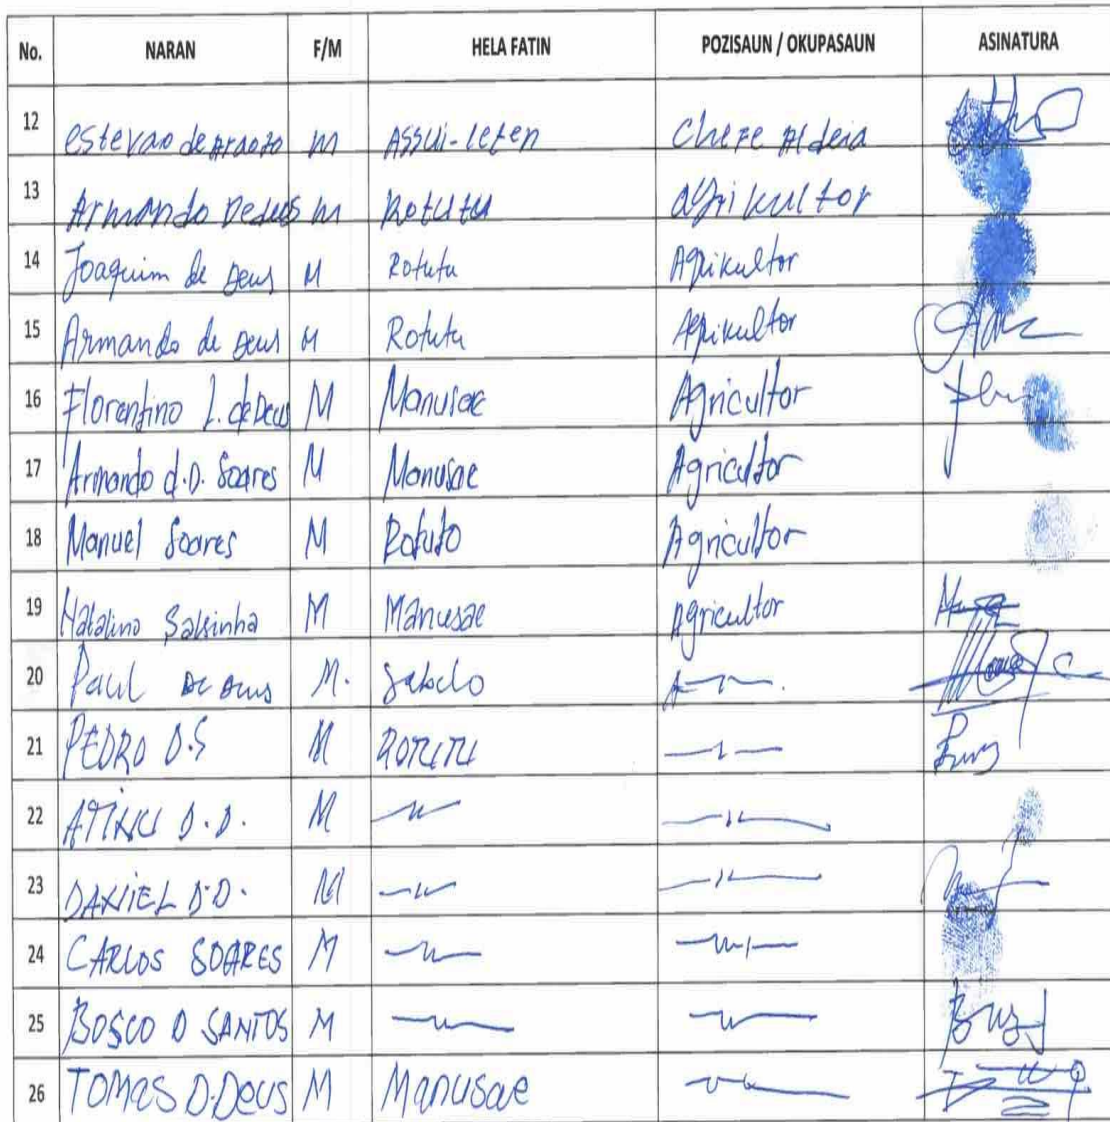 No. NARAN F/M HELA FATIN POZISAUN / OKUPASAUN ASINATURA
12 estevao de Araujo M Assui-leten Chefe Aldeia
13 Armando Dedeus M Rotutu agrikultor
14 Joaquim de Deus M Rotutu Agrikultor
15 Armando de Deus M Rotutu Agrikultor
16 Florentino L. de Deus M Manusae Agricultor
17 Armando d.D. Soares M Manusae Agricultor
18 Manuel Soares M Rotuto Agricultor
19 Natalino Salsinha M Manusae Agricultor
20 Paul De Deus M.
21 PEDRO D.S M ROTUTU
22 D.D. M
23 DANIEL D.D. M
24 CARLOS SOARES M
25 BOSCO D SANTOS M
26 TOMAS D.Deus M Manusae